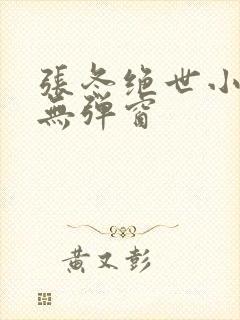 張冬绝世小
無弹窗
黄又彭